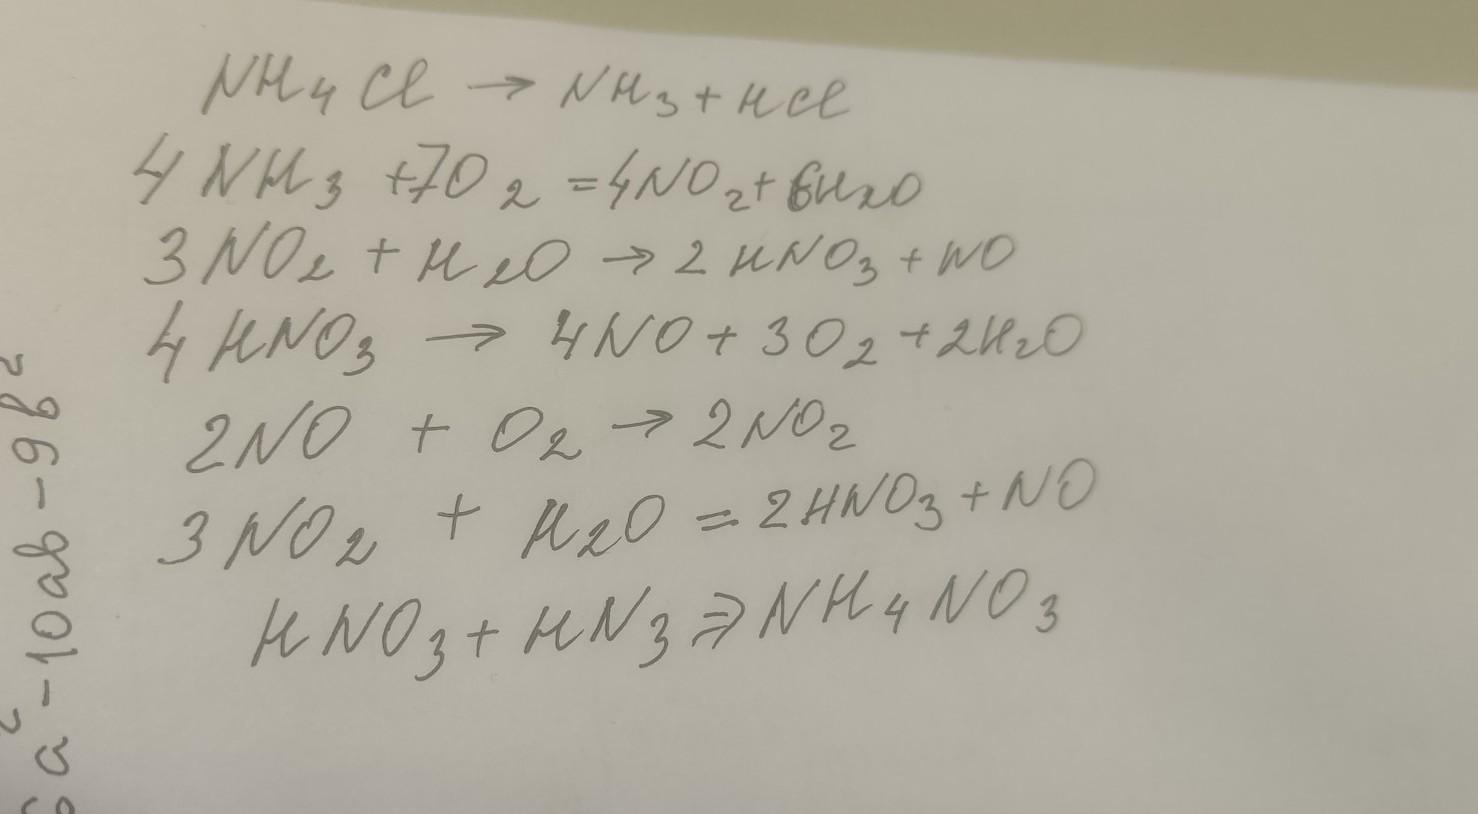 NH₄Cl → NH₃ + HCl
4NH₃ + 7O₂ = 4NO₂ + 6H₂O
3NO₂ + H₂O → 2HNO₃ + NO
4HNO₃ → 4NO + 3O₂ + 2H₂O
2NO + O₂ → 2NO₂
3NO₂ + H₂O = 2HNO₃ + NO
HNO₃ + HN₃ ⇒ NH₄NO₃
a² - 10ab - 9b²